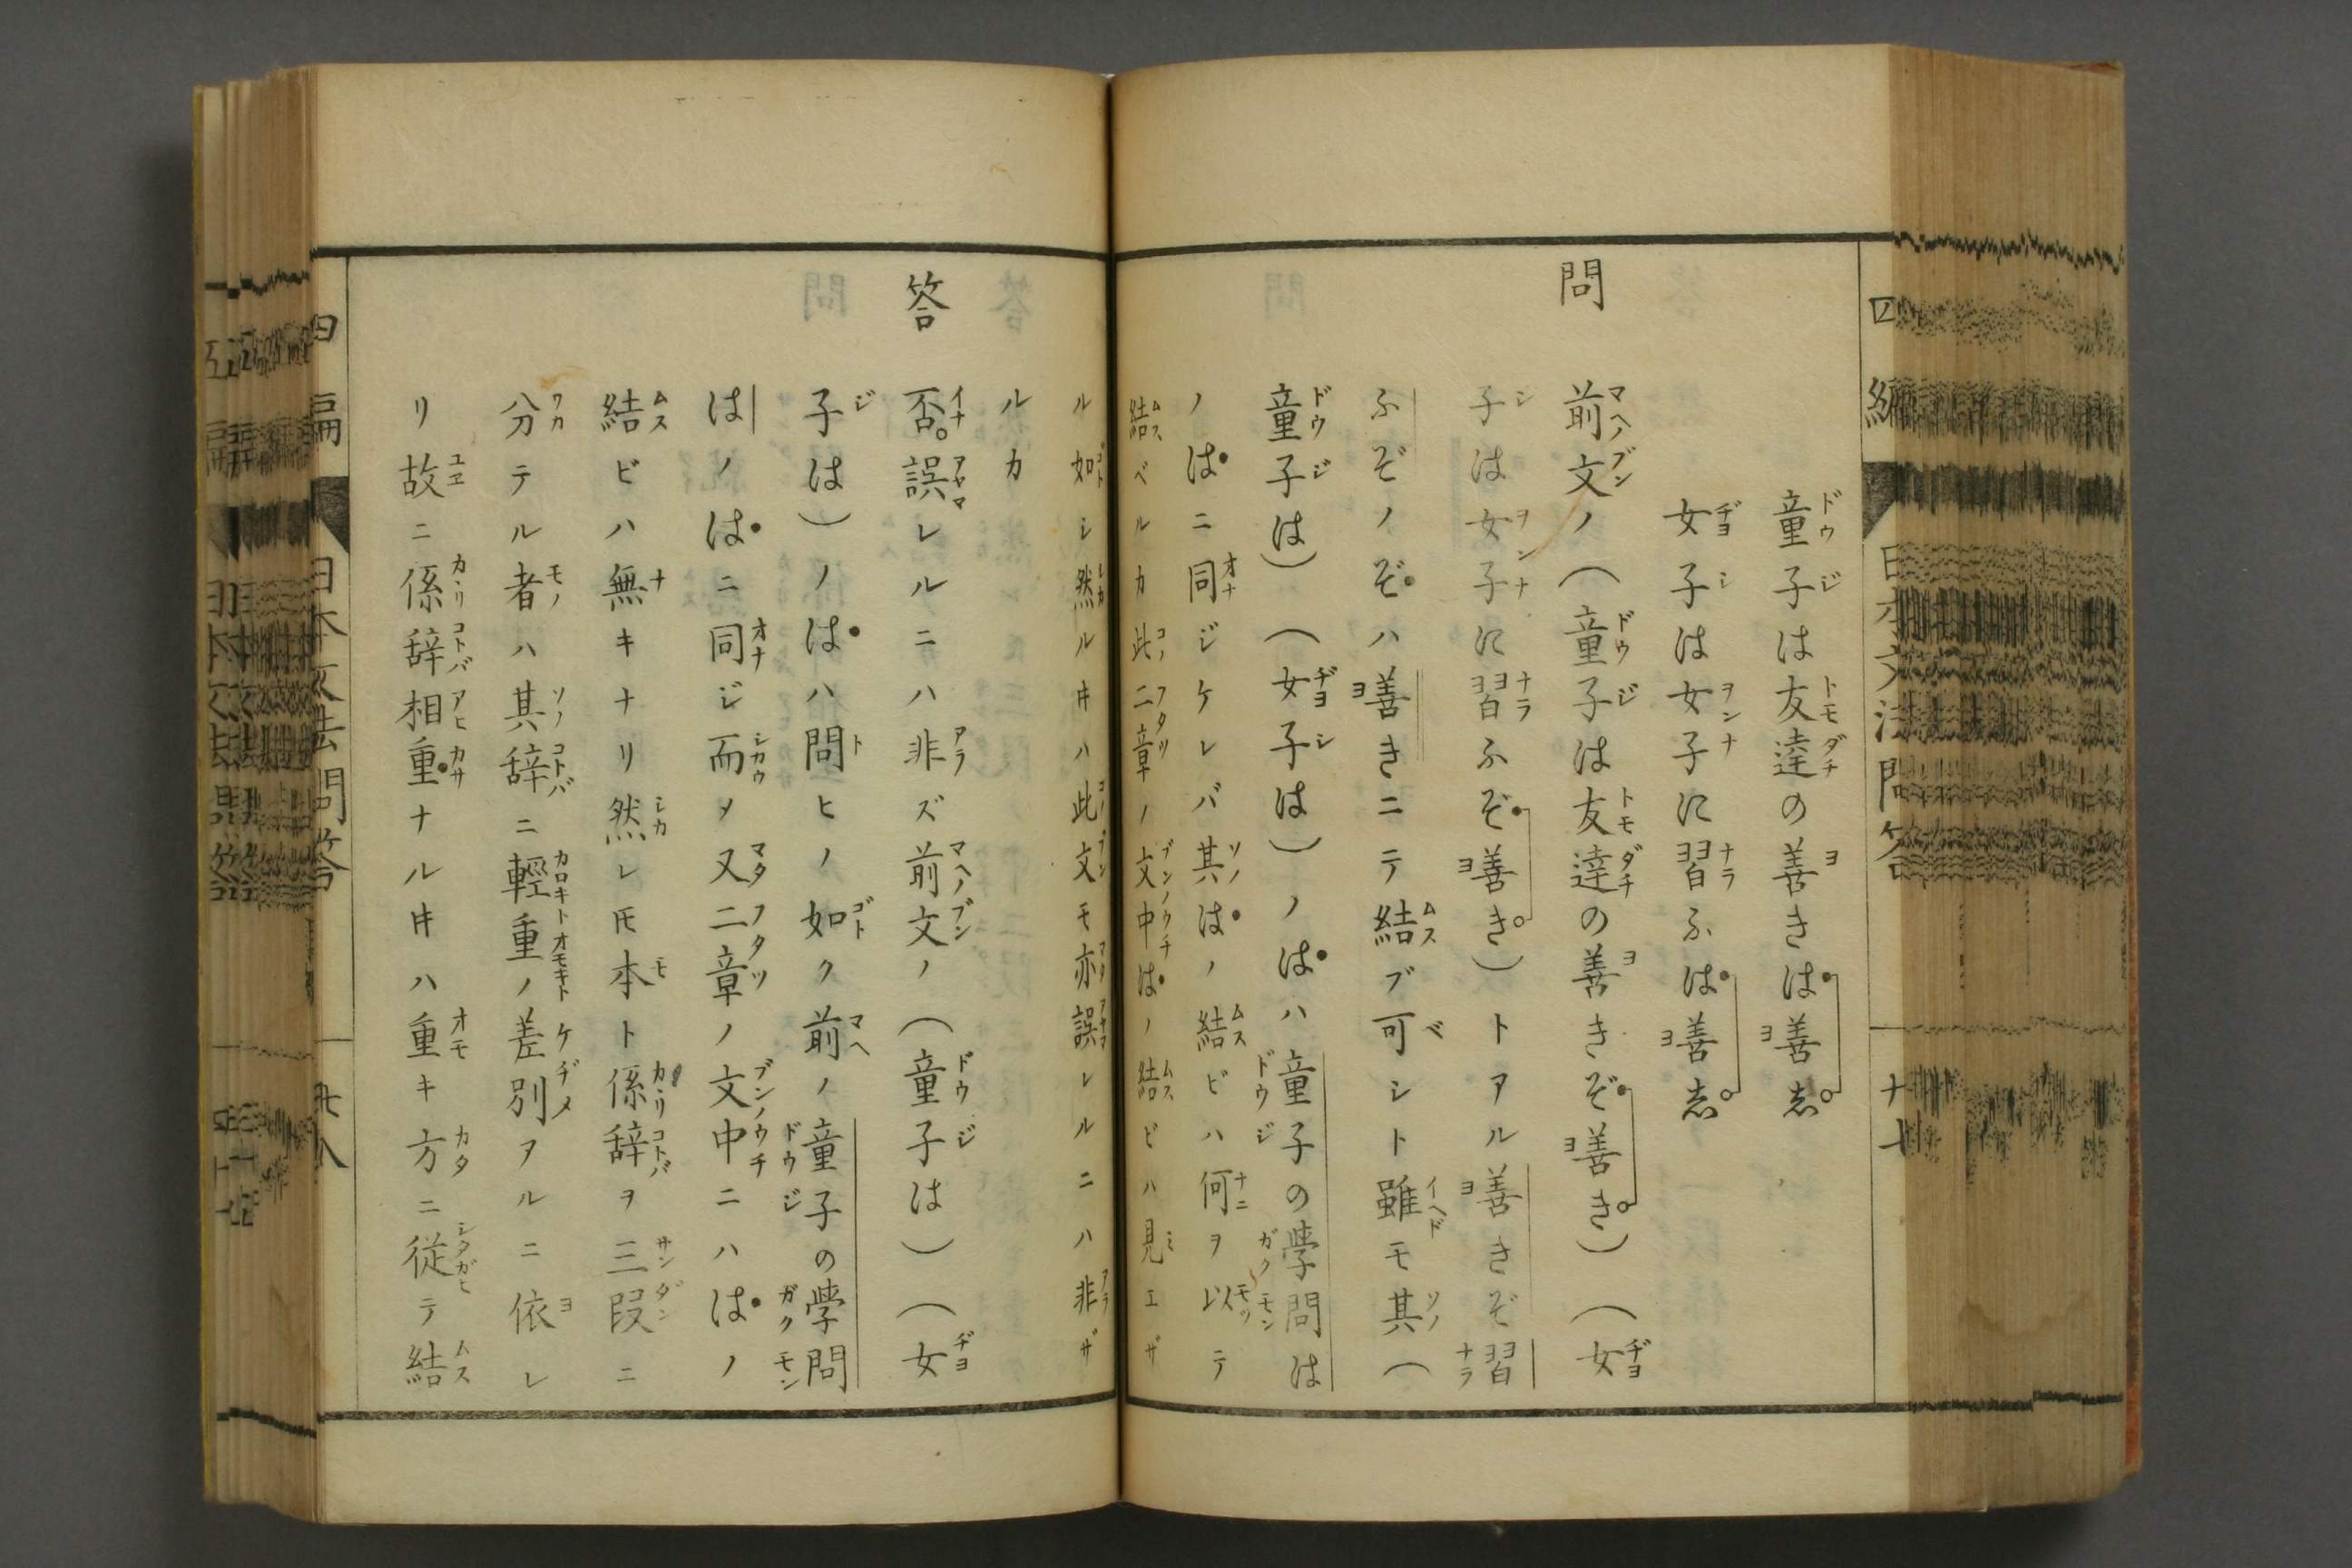 四編 日本文法問答 十七
童子は友達の善きは善志
女子は女子に習ふは善志
問 前文ノ（童子は友達の善きぞ善き）（女
子は女子に習ふぞ善き）トアル善きぞ習
ふぞノぞハ善きニテ結ブ可シト雖モ其（
童子は）（女子は）ノはハ童子の學問は
ノはニ同ジケレバ其はノ結ビハ何ヲ以テ
結ベルカ此二章ノ文中はノ結ビハ見エザ
ル如シ然ルヰハ此文モ亦誤レルニハ非ザ
ルカ
答 否。誤レルニハ非ズ前文ノ（童子は）（女
子は）ノはハ問ヒノ如ク前ノ童子の學問
はノはニ同ジ而メ又二章ノ文中ニハはノ
結ビハ無キナリ然レ𪜈本ト係辞ヲ三段ニ
分テル者ハ其辞ニ輕重ノ差別アルニ依レ
リ故ニ係辞相重ナルヰハ重キ方ニ従テ結
四編 日本文法問答